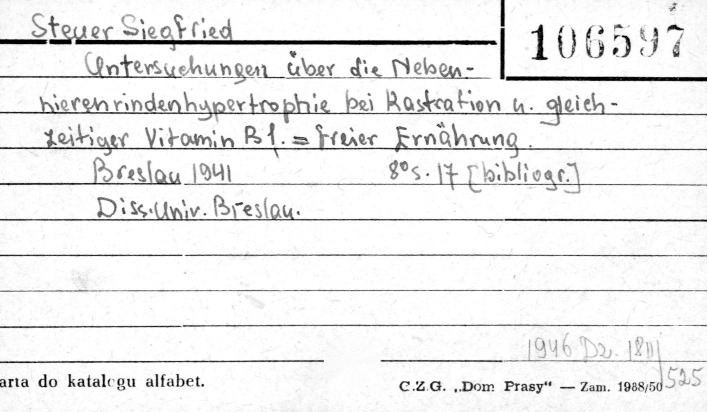 Steuer Siegfried
106597
Untersuchungen über die Neben-
nierenrindenhypertrophie bei Kastration u. gleich-
zeitiger Vitamin B1. = freier Ernährung.
Breslau 1941 8° s. 17 [bibliogr.]
Diss. Univ. Breslau.
1946 Dz.
525
arta do katalogu alfabet.
C.Z.G. „Dom Prasy" — Zam. 1988/50